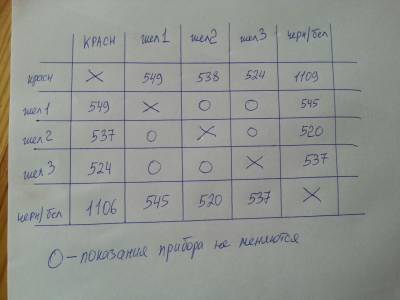 КРАСН жел 1 жел 2 жел 3 черн/бел
красн X 549 538 524 1109
жел 1 549 X O O 545
жел 2 537 O X O 520
жел 3 524 O O X 537
черн/бел 1106 545 520 537 X
O – показания прибора не меняются